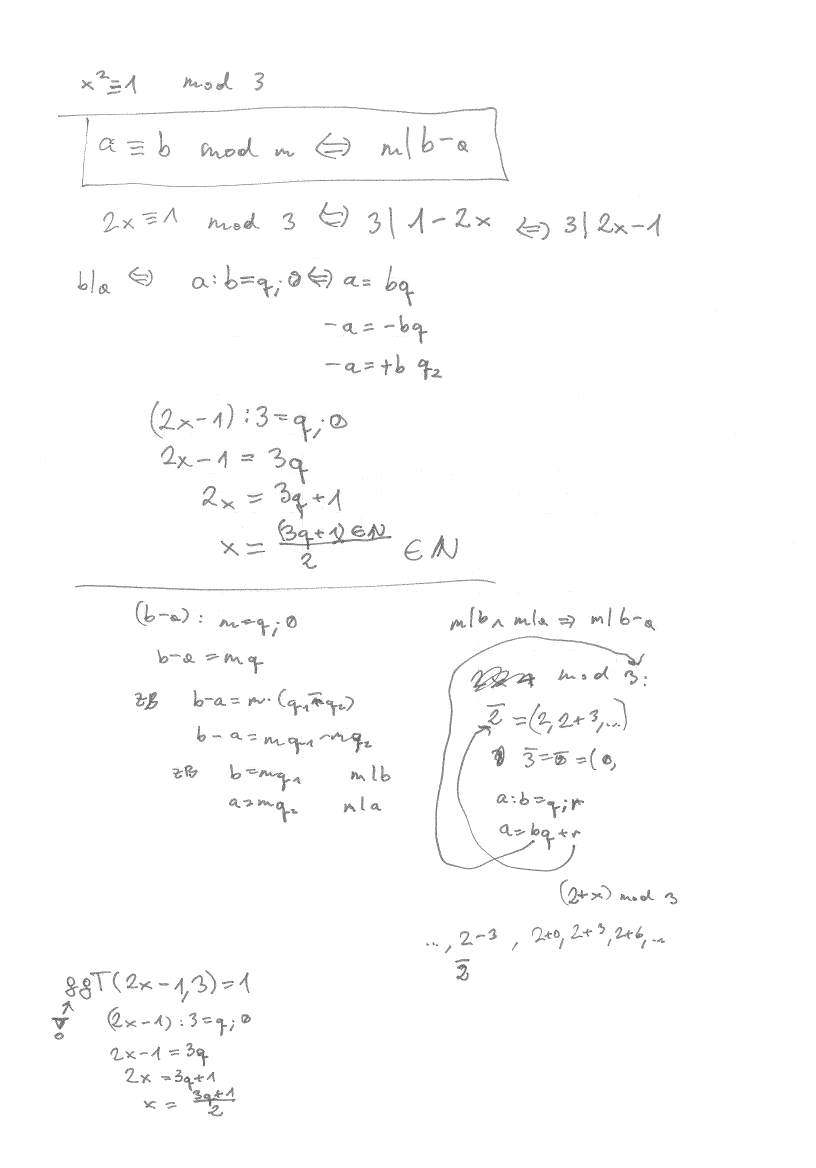 x²≡1 mod 3
a ≡ b mod m ⇔ m|b-a
2x≡1 mod 3 ⇔ 3|1-2x ⇔ 3|2x-1
b|a ⇔ a:b=q;0 ⇔ a= bq
-a=-bq
-a=+b q₂
(2x-1):3=q;0
2x-1 = 3q
2x = 3q+1
x = (3q+1)∈N / 2 ∈ N
(b-a): m=q;0
b-a=mq
zB b-a=m·(q₁-q₂)
b-a=mq₁-mq₂
zB b=mq₁ m|b
a=mq₂ m|a
m|b ∧ m|a ⇒ m|b-a
mod 3:
2̅ =(2,2+3,...)
3̅=0̅=(0,
a:b=q;r
a=bq+r
(2+x) mod 3
..., 2-3, 2+0, 2+3, 2+6, ...
2̅
ggT(2x-1,3)=1
(2x-1):3=q;0
2x-1=3q
2x=3q+1
x = (3q+1)/2